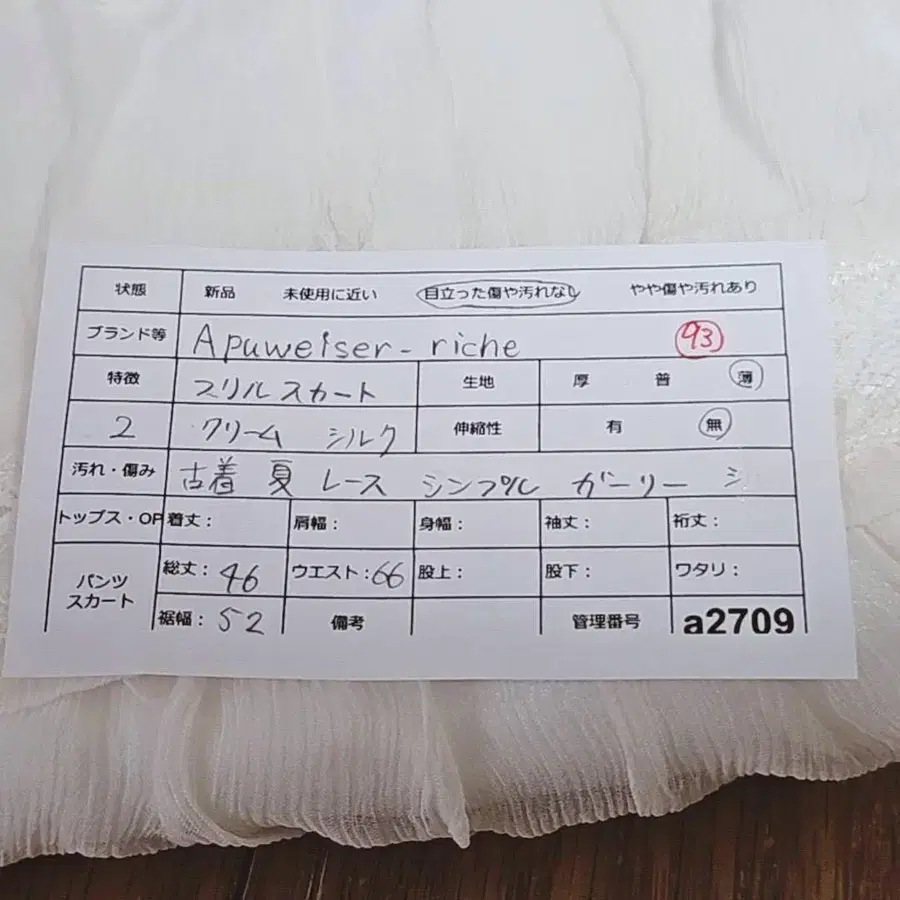 状態 新品 未使用に近い 目立った傷や汚れなし やや傷や汚れあり
ブランド等 Apuweiser-riche 93
特徴 フリルスカート 生地 厚 普 薄
2 クリーム シルク 伸縮性 有 無
汚れ・傷み 古着 夏 レース シンプル ガーリー シ
トップス・OP 着丈: 肩幅: 身幅: 袖丈: 裄丈:
パンツ スカート 総丈:46 ウエスト:66 股上: 股下: ワタリ:
裾幅:52 備考 管理番号 a2709